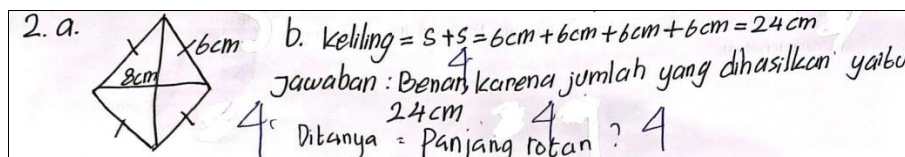 2. a.
6cm
8cm
b. Keliling = S+S = 6cm+6cm+6cm+6cm = 24cm
4
Jawaban : Benar, karena jumlah yang dihasilkan yaitu
24cm
4 4 4
Ditanya = Panjang rotan ?